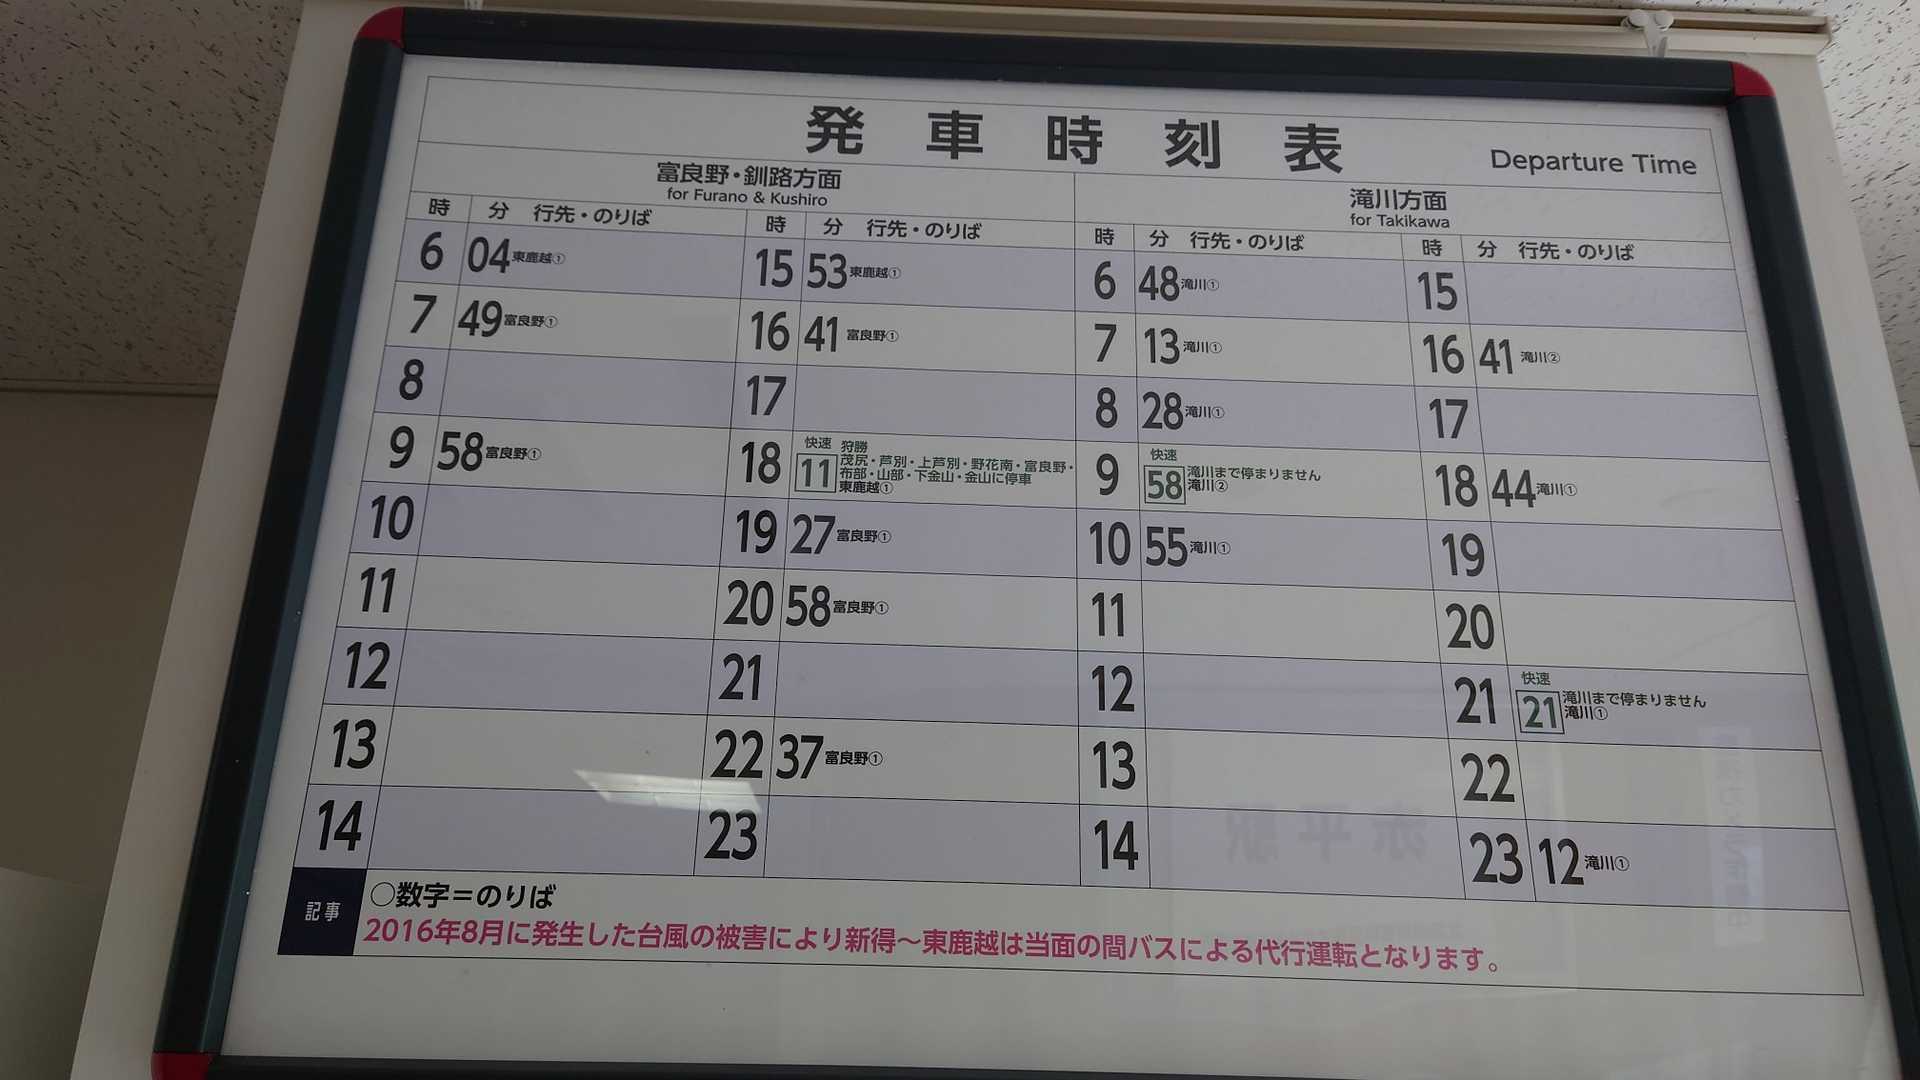 発車時刻表 Departure Time
富良野・釧路方面
for Furano & Kushiro
滝川方面
for Takikawa
時 分 行先・のりば 時 分 行先・のりば 時 分 行先・のりば 時 分 行先・のりば
6 04 東鹿越① 15 53 東鹿越① 6 48 滝川① 15
7 49 富良野① 16 41 富良野① 7 13 滝川① 16 41 滝川②
8 17 8 28 滝川① 17
9 58 富良野① 18 快速 11 狩勝 茂尻・芦別・上芦別・野花南・富良野・布部・山部・下金山・金山に停車 東鹿越① 9 快速 58 滝川まで停まりません 滝川② 18 44 滝川①
10 19 27 富良野① 10 55 滝川① 19
11 20 58 富良野① 11 20
12 21 12 21 快速 21 滝川まで停まりません 滝川①
13 22 37 富良野① 13 22
14 23 14 23 12 滝川①
記事 ○数字=のりば
2016年8月に発生した台風の被害により新得~東鹿越は当面の間バスによる代行運転となります。